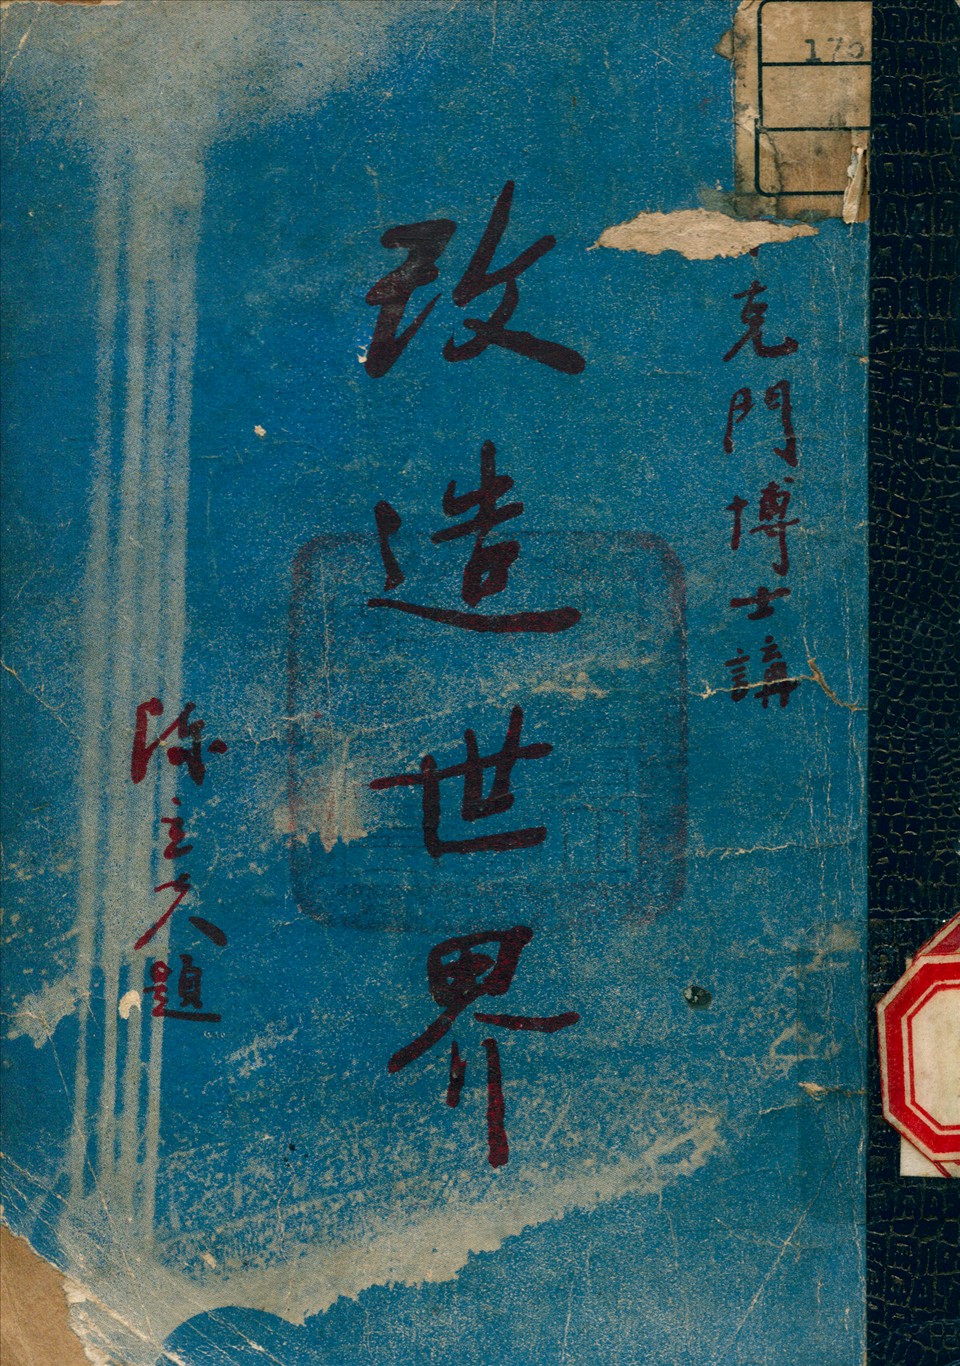 克門博士講
改造世界
陳立夫題